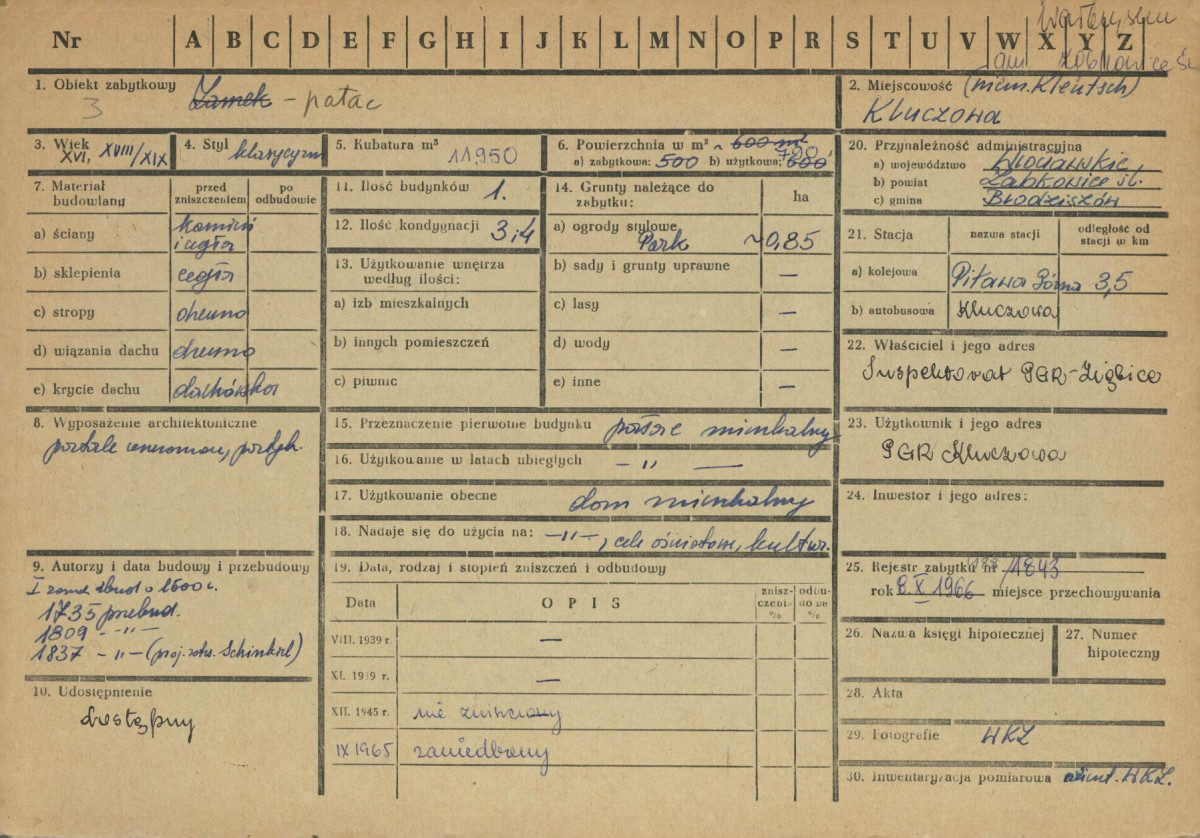 Nr A B C D E F G H I J K L M N O P R S T U V W X Y Z
1. Obiekt zabytkowy Zamek - pałac
3
2. Miejscowość (niem. Kleutsch)
Kluczowa
3. Wiek
XVI, XVIII/XIX
4. Styl klasycyzm
5. Kubatura m³
11,950
6. Powierzchnia w m² ~ 600 m²
a) zabytkowa: 500 b) użytkowa: 600
790
7. Materiał budowlany
przed zniszczeniem
po odbudowie
a) ściany kamień i cegła
b) sklepienia cegła
c) stropy drewno
d) wiązania dachu drewno
e) krycie dachu dachówka
8. Wyposażenie architektoniczne
portale
9. Autorzy i data budowy i przebudowy
I zamek zbud. o 1600 r.
1735 przebud.
1809 - " -
1837 - " - (proj. Schinkel)
10. Udostępnienie
dostępny
11. Ilość budynków 1.
12. Ilość kondygnacji 3 i 4
13. Użytkowanie wnętrza
według ilości:
a) izb mieszkalnych
b) innych pomieszczeń
c) piwnic
14. Grunty należące do
zabytku:
ha
a) ogrody stylowe
Park ~0,85
b) sady i grunty uprawne —
c) lasy —
d) wody —
e) inne —
15. Przeznaczenie pierwotne budynku pałac mieszkalny
16. Użytkowanie w latach ubiegłych - " —
17. Użytkowanie obecne dom mieszkalny
18. Nadaje się do użycia na: - " -, cele oświatowe, kultur.
19. Data, rodzaj i stopień zniszczeń i odbudowy
Data OPIS zniszczeni % odbudowa %
VIII. 1939 r. —
XI. 1939 r. —
XII. 1945 r. nie zniszczony
IX 1965 zaniedbany
20. Przynależność administracyjna
a) województwo Wrocławskie
b) powiat Ząbkowice śl.
c) gmina Brodziszów
21. Stacja
nazwa stacji
odległość od
stacji w km
a) kolejowa Piława Górna 3,5
b) autobusowa Kluczowa
22. Właściciel i jego adres
Inspektorat PGR-Ziębice
23. Użytkownik i jego adres
PGR Kluczowa
24. Inwestor i jego adres:
25. Rejestr zabytku nr /1843
rok 8. X 1966 miejsce przechowywania
26. Nazwa księgi hipotecznej
27. Numer
hipoteczny
28. Akta
29. Fotografie WKZ
30. Inwentaryzacja pomiarowa WKZ.